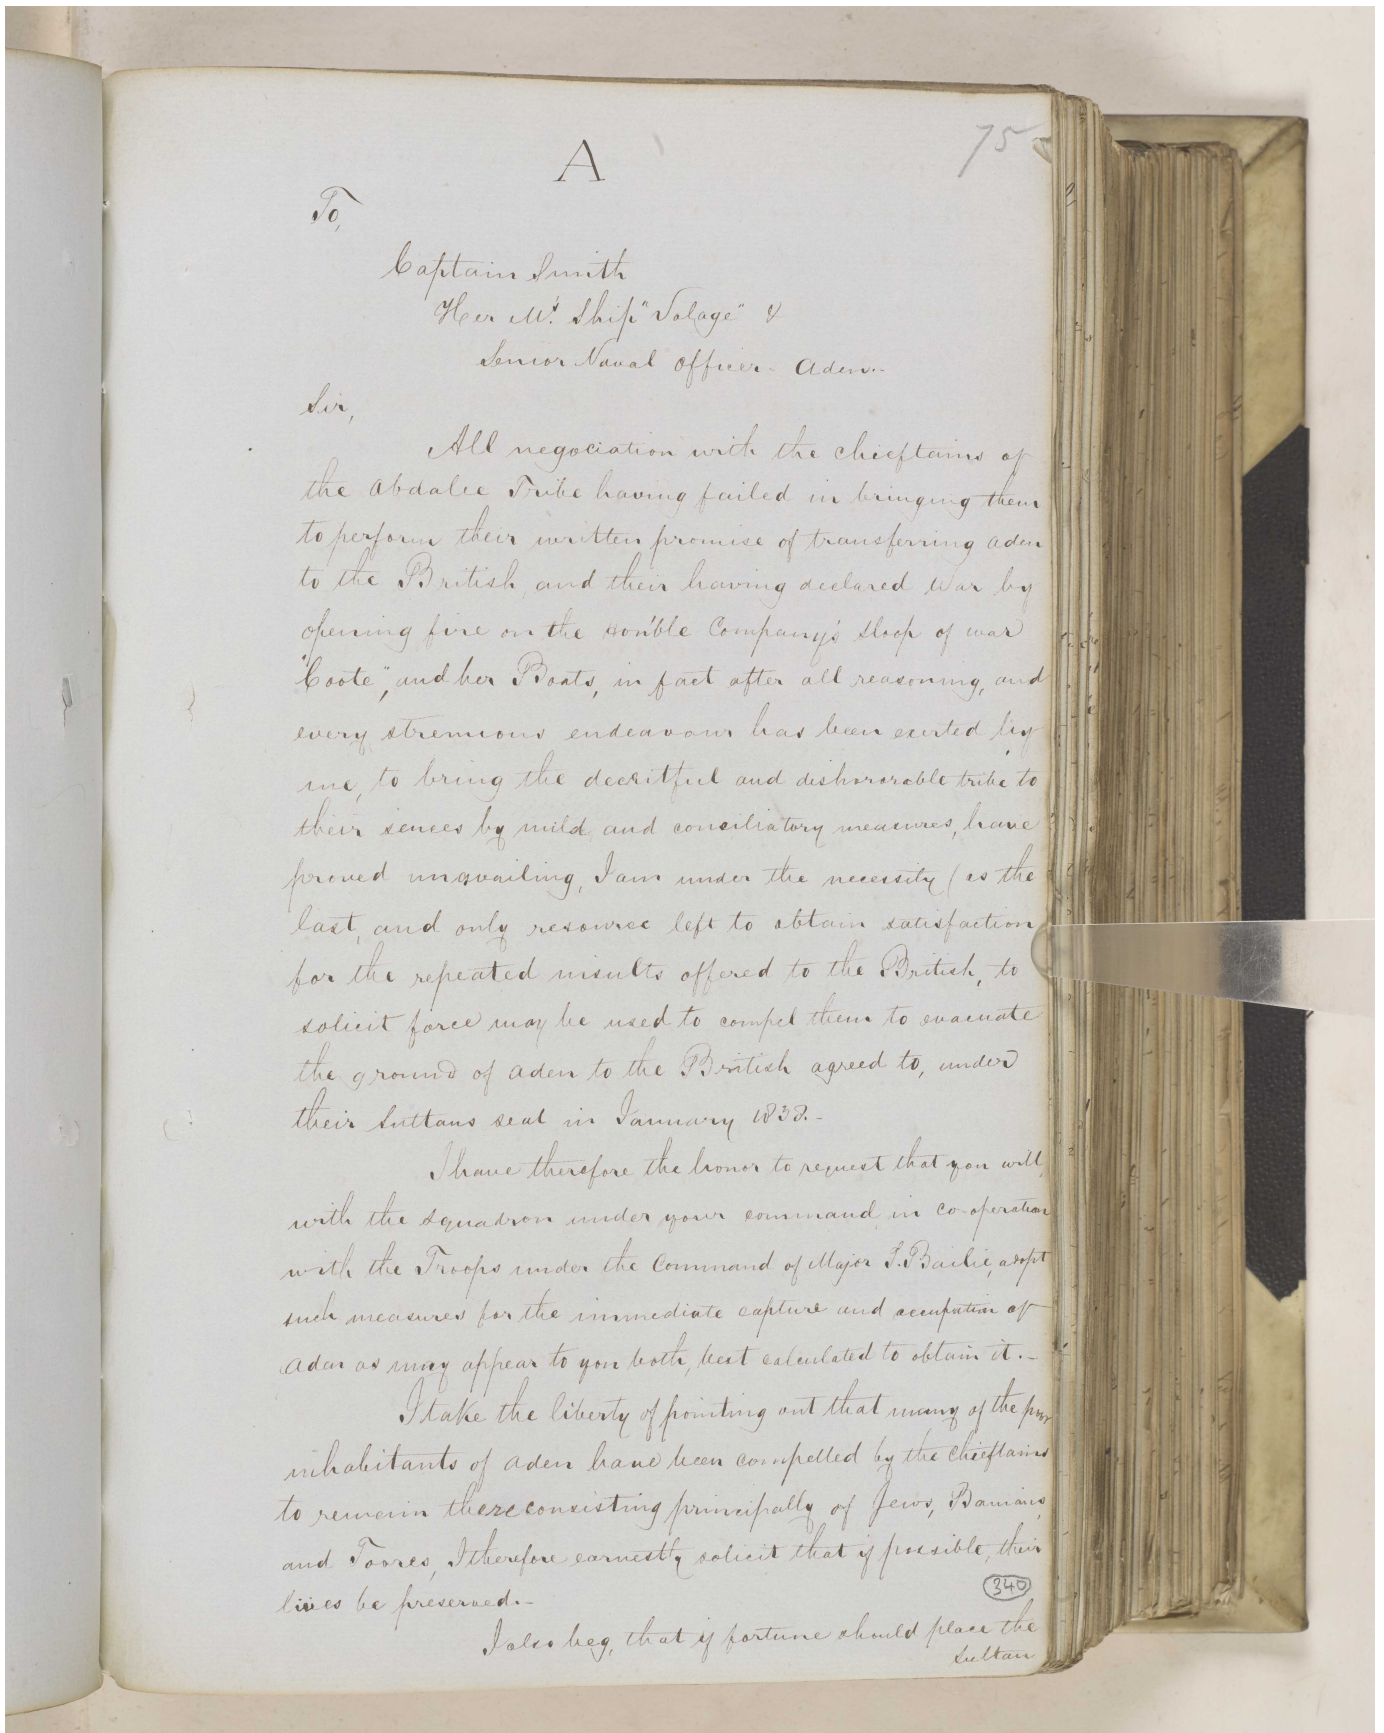 75
A
To,
Captain Smith
Her M's. Ship "Volage" &
Senior Naval Officer - Aden.-
Sir,
All negociation with the chieftains of
the Abdalee Tribe having failed in bringing them
to perform their written promise of transferring Aden
to the British, and their having declared War by
opening fire on the Hon'ble Company's Sloop of War
"Coote", and her Boats, in fact after all reasoning, and
every strenuous endeavour has been exerted by
me, to bring the deceitful and dishonorable tribe to
their sences by mild and conciliatory measures, have
proved unavailing, I am under the necessity (as the
last, and only resource left to obtain satisfaction
for the repeated insults offered to the British, to
solicit force may be used to compel them to evacuate
the ground of Aden to the British agreed to, under
their Sultans seal in January 1838.-
I have therefore the honor to request that you will,
with the squadron under your command in co-operation
with the Troops under the Command of Major T. Bailie, adopt
such measures for the immediate capture and occupation of
Aden as may appear to you both, best calculated to obtain it.-
I take the liberty of pointing out that many of the poor
inhabitants of Aden have been compelled by the chieftains
to remain there consisting principally of Jews, Banians,
and Toores, I therefore earnestly solicit that if possible, their
lives be preserved.-
340
I also beg, that if fortune should place the
Sultan